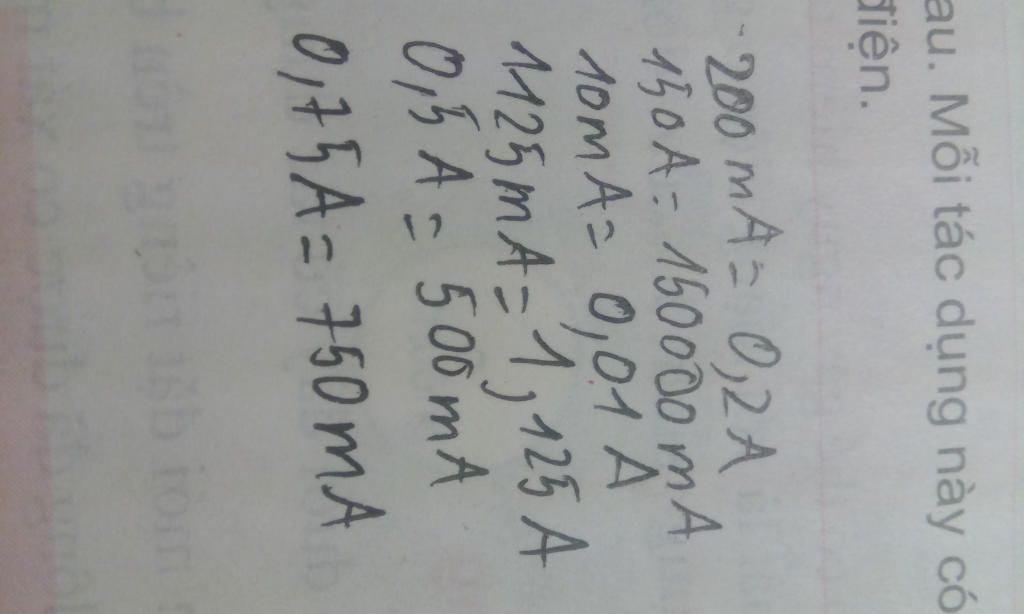 au. Mỗi tác dụng này có
điện.
- 200 mA = 0,2 A
150A = 150000 mA
10mA = 0,01 A
1125mA = 1,125 A
0,5 A = 500 mA
0,75A = 750 mA